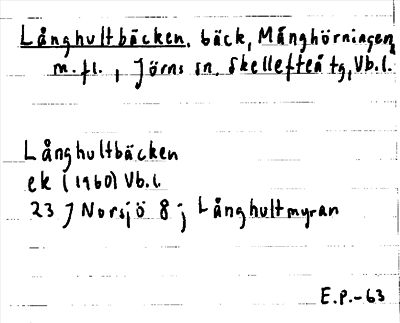 Långhultbäcken, bäck, Månghörningen
m.fl., Jörns sn, Skellefteå tg, Vb.l.
Långhultbäcken
ek (1960) Vb.l.
23 J Norsjö 8 j Långhultmyran
E.P.-63